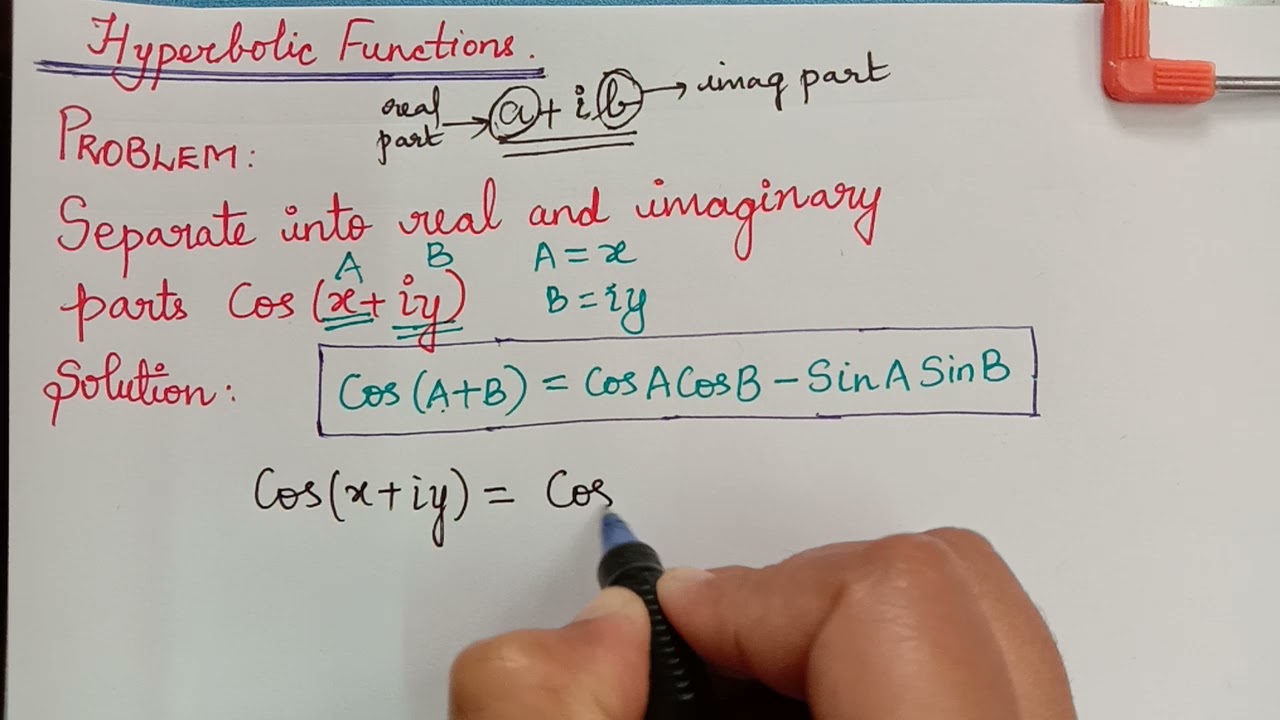 Hyperbolic Functions.
real part → a + i b → imag part
PROBLEM:
Separate into real and imaginary
A B A = x
parts Cos (x + iy) B = iy
Solution: Cos (A+B) = CosACosB - SinA SinB
Cos(x+iy) = Cos